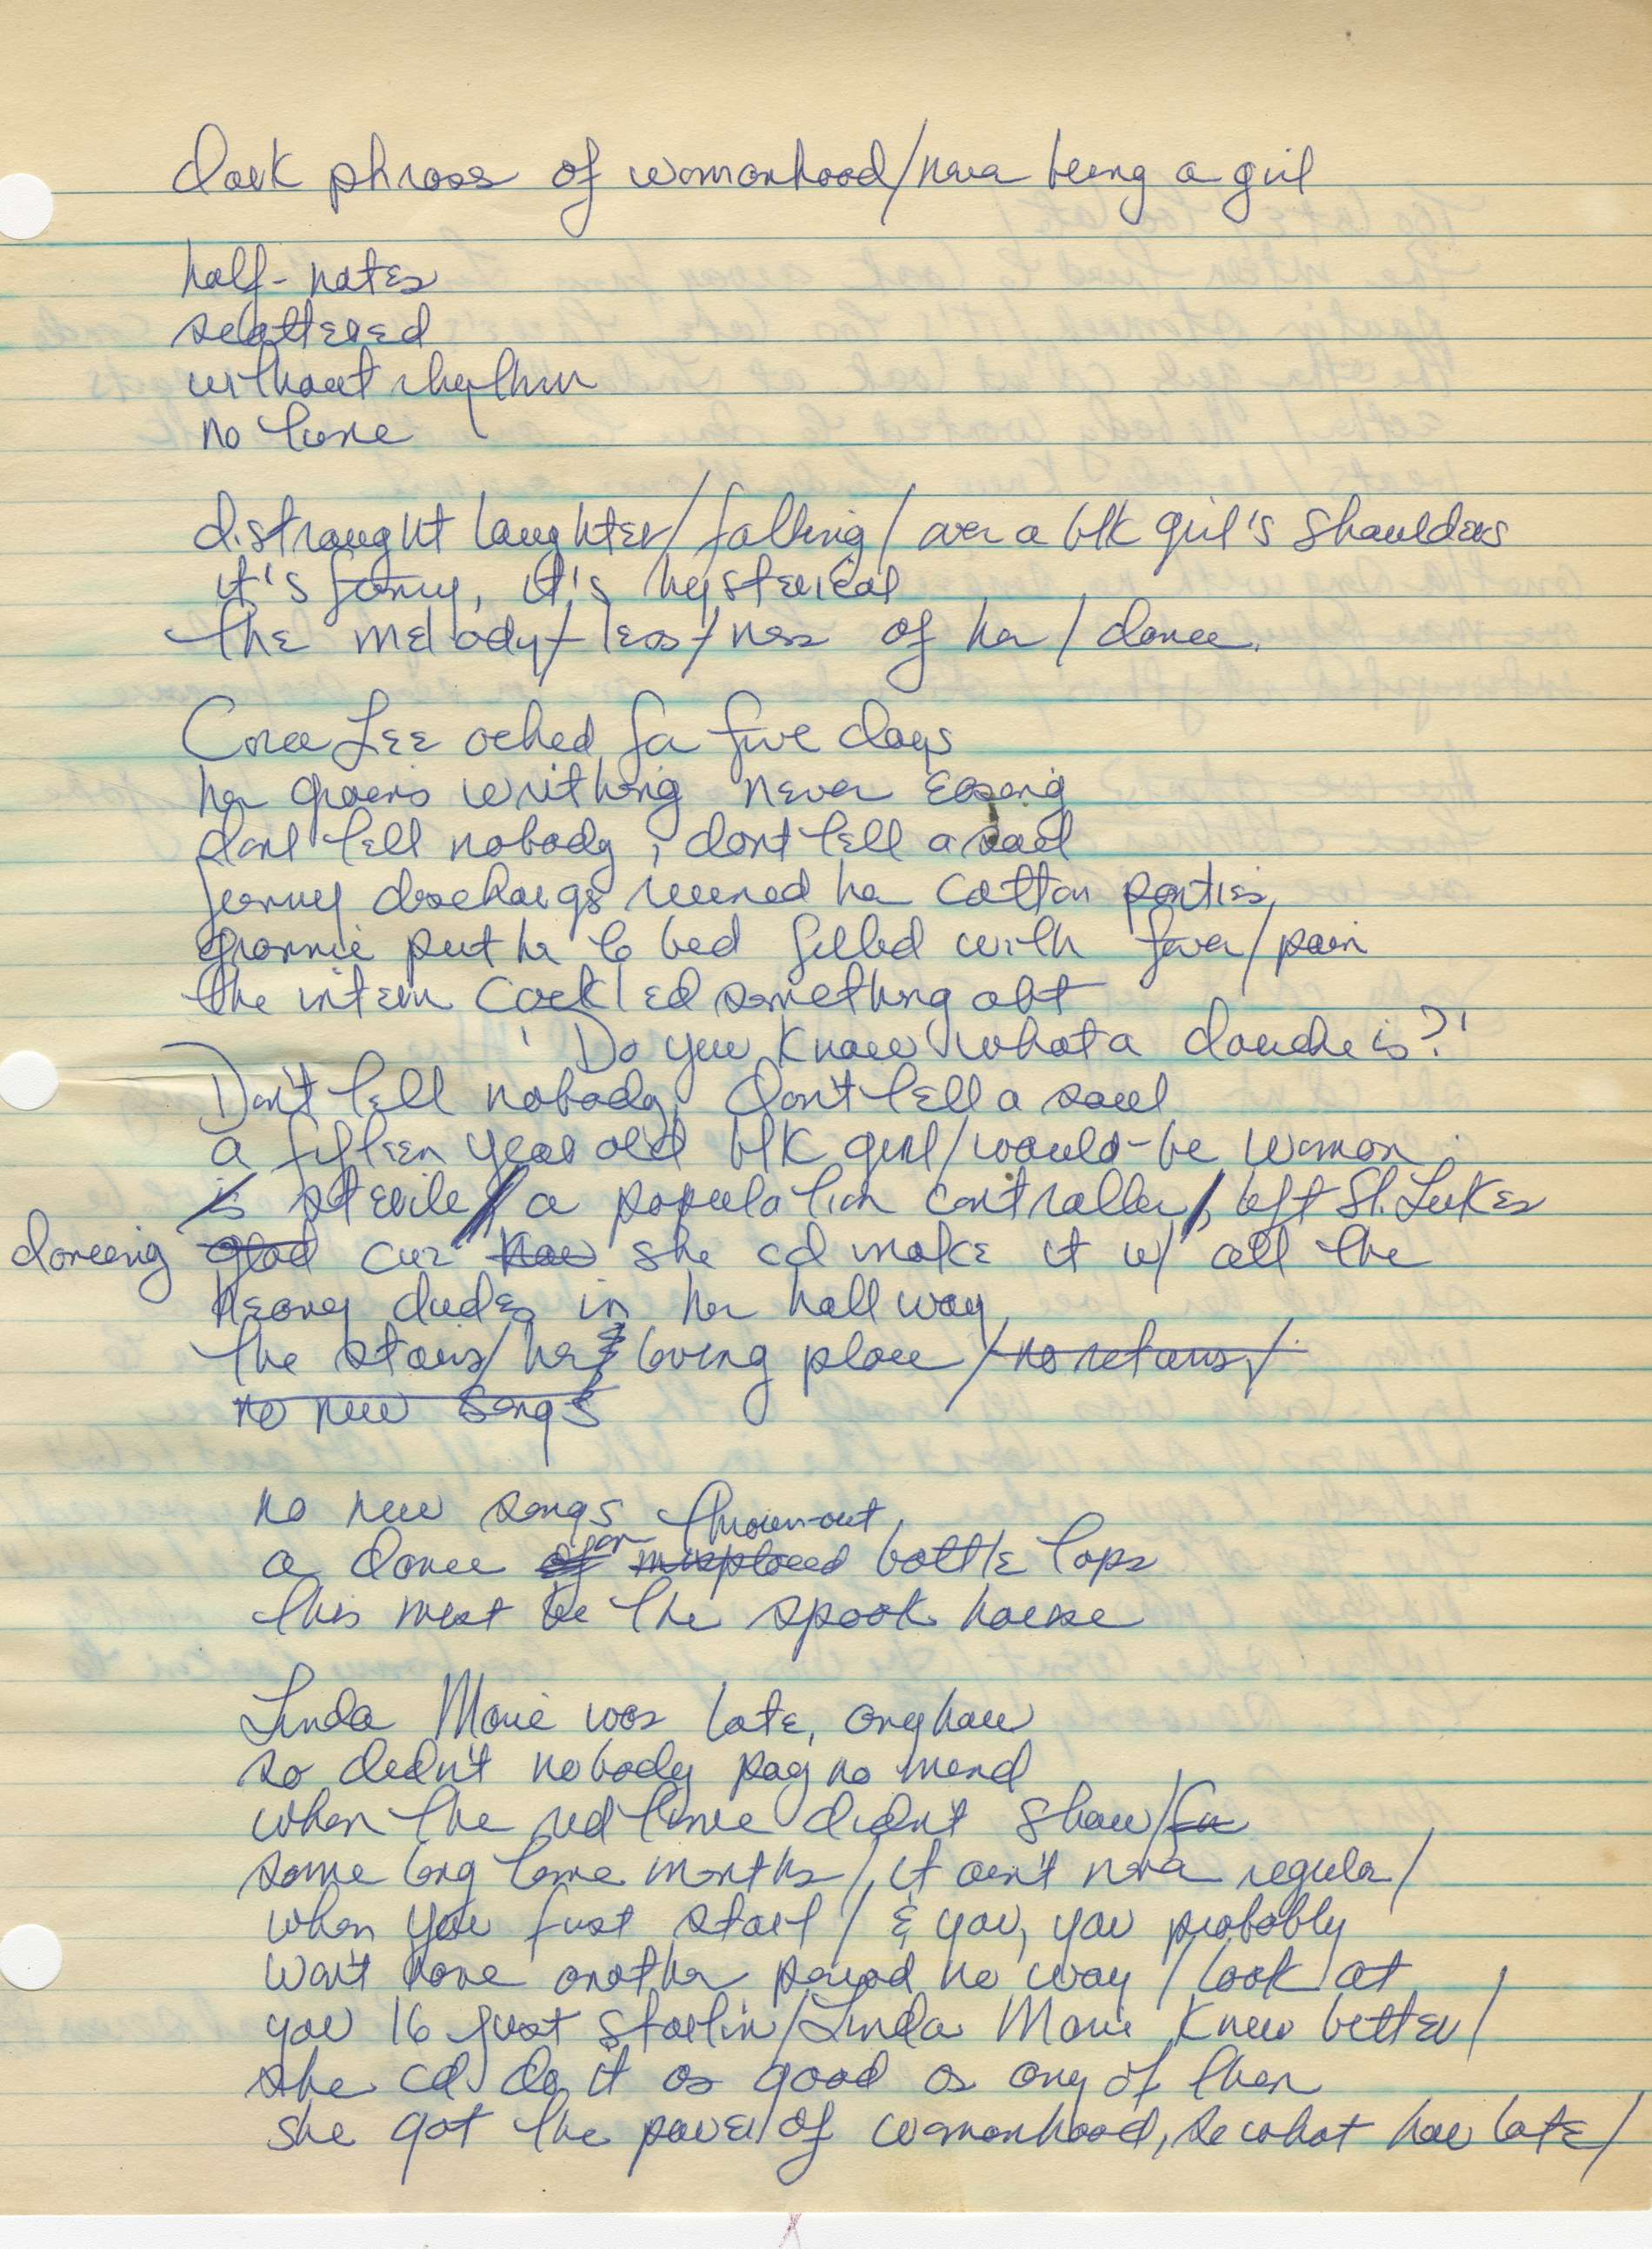 dark phrases of womanhood/neva being a girl
half-notes
scattered
without rhythm
no tune
distraught laughter/falling/over a blk girl's shoulders
it's funny, it's hysterical
the melody/less/ness of her/dance.
Cora Lee ached for five days
her groins writhing never easing
dont tell nobody, dont tell a soul
funny discharges ruined her cotton panties,
grannie put her to bed filled with fever/pain
the intern cackled something abt
'Do you know what a douche is?'
Don't tell nobody, don't tell a soul
a fifteen year old blk girl/would-be woman
is sterile/a population controller/, left St. Lukes
dancing glad cuz now she cd make it w/ all the
heavy dudes in her hallway
the stairs/her loving place/no returns/
no new songs
no new songs
a dance of on misplaced thrown-out bottle tops
this must be the spook house
Linda Marie was late, anyhow
so didn't nobody pay no mind
when the red time didn't show/for
some long time months/, it ain't neva regular/
when you first start/ & you, you probably
won't have another period no way/look at
you 16 just startin/Linda Marie knew better/
she cd do it as good as any of them
she got the power of womanhood, so what how late/